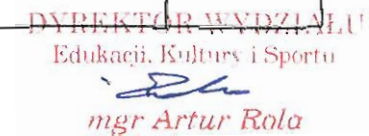 DYREKTOR WYDZIAŁU
Edukacji, Kultury i Sportu
mgr Artur Rola